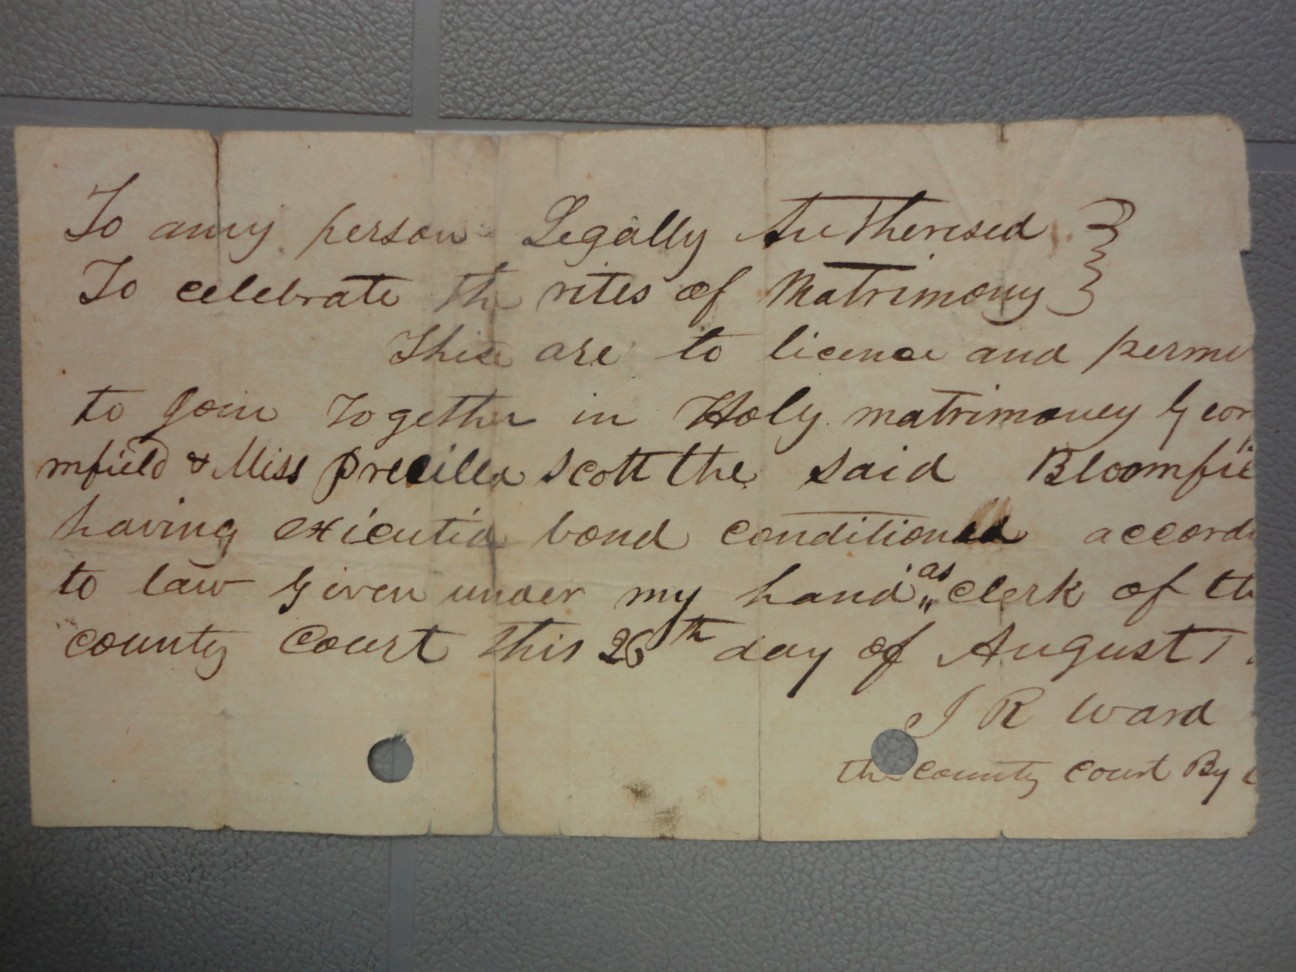 To any person Legally Autherised
To celebrate the rites of Matrimony
These are to licence and permi
to Join Together in Holy matrimoney Geor
mfield & Miss Precilla Scott the said Bloomfie
having exicutid bond conditioned accordi
to law Given under my hand as clerk of th
county Court this 26th day of August 1
J R Ward
the County Court By